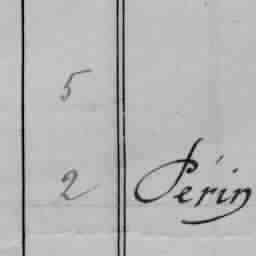 5
2 Périn